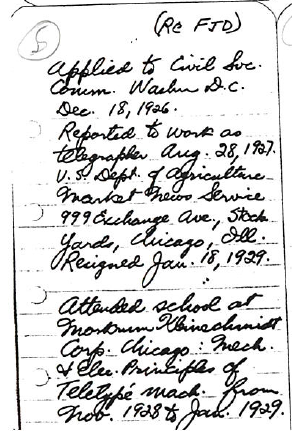 5
(Re FJD)
Applied to Civil Svc.
Comm. Washn D.C.
Dec. 18, 1926.
Reported to work as
telegrapher Aug. 28, 1927.
U.S. Dept. of Agriculture
Market News Service
999 Exchange Ave., Stock
Yards, Chicago, Ill.
Resigned Jan. 18, 1929.
Attended school at
Morkrum Kleinschmidt
Corp. Chicago: Mech.
& Elec. Principles of
Teletype mach. from
Nov. 1928 to Jan. 1929.